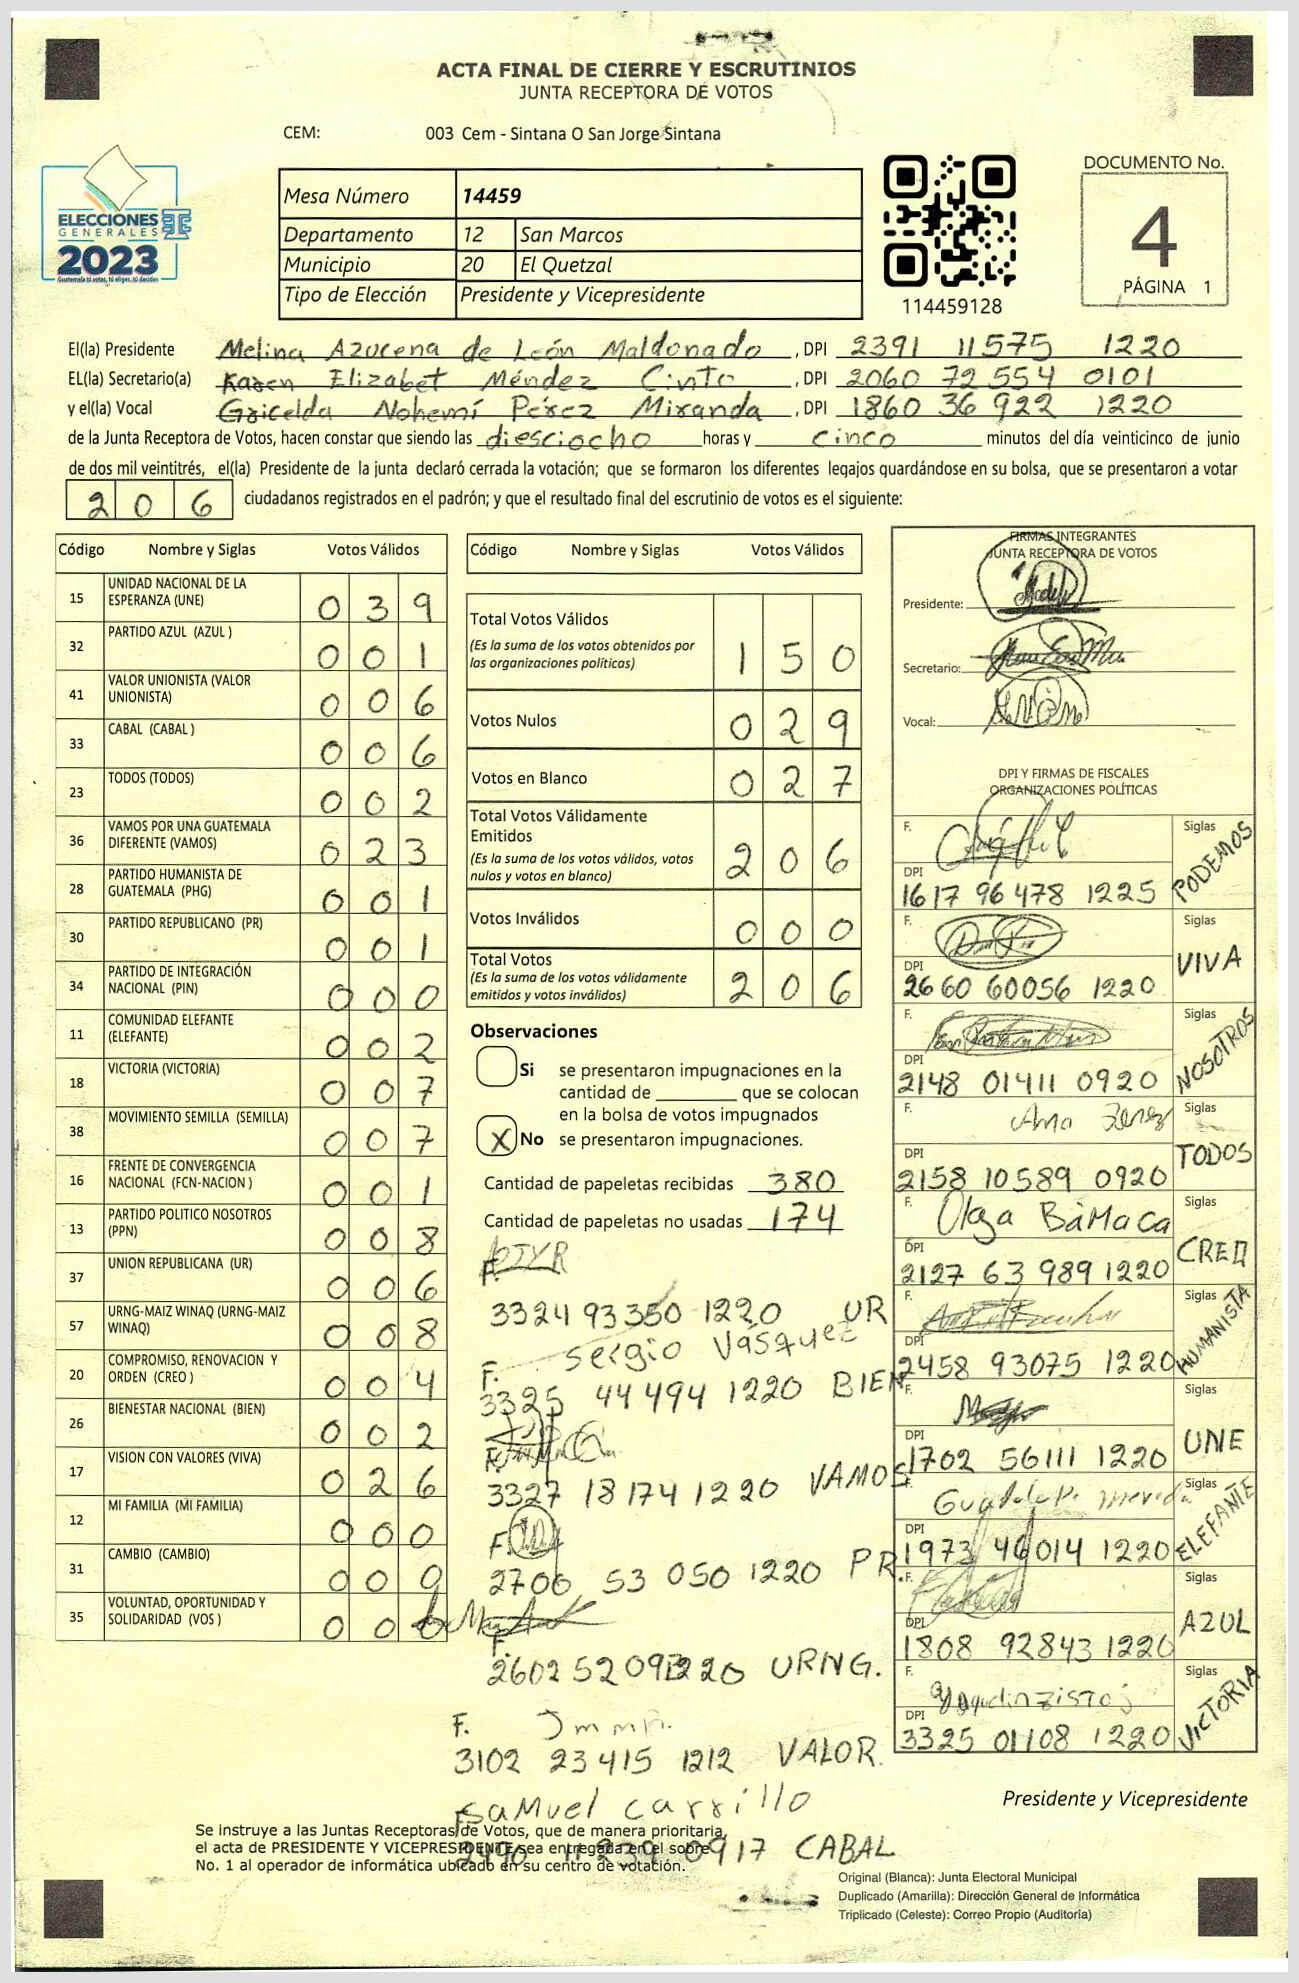 ACTA FINAL DE CIERRE Y ESCRUTINIOS
JUNTA RECEPTORA DE VOTOS
CEM: 003 Cem - Sintana O San Jorge Sintana
DOCUMENTO No.
4
PÁGINA 1
ELECCIONES
GENERALES
2023
Guatemala tú votas, tú eliges, tú decides
Mesa Número 14459
Departamento 12 San Marcos
Municipio 20 El Quetzal
Tipo de Elección Presidente y Vicepresidente
114459128
El(la) Presidente Melina Azucena de León Maldonado , DPI 2391 11575 1220
EL(la) Secretario(a) Karen Elizabet Méndez Cinto , DPI 2060 72 554 0101
y el(la) Vocal Gricelda Nohemí Pérez Miranda , DPI 1860 36 922 1220
de la Junta Receptora de Votos, hacen constar que siendo las diesciocho horas y cinco minutos del día veinticinco de junio
de dos mil veintitrés, el(la) Presidente de la junta declaró cerrada la votación; que se formaron los diferentes legajos quardándose en su bolsa, que se presentaron a votar
2 0 6 ciudadanos registrados en el padrón; y que el resultado final del escrutinio de votos es el siguiente:
Código Nombre y Siglas Votos Válidos
15 UNIDAD NACIONAL DE LA ESPERANZA (UNE) 0 3 9
32 PARTIDO AZUL (AZUL ) 0 0 1
41 VALOR UNIONISTA (VALOR UNIONISTA) 0 0 6
33 CABAL (CABAL ) 0 0 6
23 TODOS (TODOS) 0 0 2
36 VAMOS POR UNA GUATEMALA DIFERENTE (VAMOS) 0 2 3
28 PARTIDO HUMANISTA DE GUATEMALA (PHG) 0 0 1
30 PARTIDO REPUBLICANO (PR) 0 0 1
34 PARTIDO DE INTEGRACIÓN NACIONAL (PIN) 0 0 0
11 COMUNIDAD ELEFANTE (ELEFANTE) 0 0 2
18 VICTORIA (VICTORIA) 0 0 7
38 MOVIMIENTO SEMILLA (SEMILLA) 0 0 7
16 FRENTE DE CONVERGENCIA NACIONAL (FCN-NACION ) 0 0 1
13 PARTIDO POLITICO NOSOTROS (PPN) 0 0 8
37 UNION REPUBLICANA (UR) 0 0 6
57 URNG-MAIZ WINAQ (URNG-MAIZ WINAQ) 0 0 8
20 COMPROMISO, RENOVACION Y ORDEN (CREO ) 0 0 4
26 BIENESTAR NACIONAL (BIEN) 0 0 2
17 VISION CON VALORES (VIVA) 0 2 6
12 MI FAMILIA (MI FAMILIA) 0 0 0
31 CAMBIO (CAMBIO) 0 0 0
35 VOLUNTAD, OPORTUNIDAD Y SOLIDARIDAD (VOS ) 0 0 0
Código Nombre y Siglas Votos Válidos
Total Votos Válidos
(Es la suma de los votos obtenidos por
las organizaciones políticas) 1 5 0
Votos Nulos 0 2 9
Votos en Blanco 0 2 7
Total Votos Válidamente
Emitidos
(Es la suma de los votos válidos, votos
nulos y votos en blanco) 2 0 6
Votos Inválidos 0 0 0
Total Votos
(Es la suma de los votos válidamente
emitidos y votos inválidos) 2 0 6
Observaciones
Si se presentaron impugnaciones en la
cantidad de ________ que se colocan
en la bolsa de votos impugnados
X No se presentaron impugnaciones.
Cantidad de papeletas recibidas 380
Cantidad de papeletas no usadas 174
F.
3324 93 350 1220 UR
F. Sergio Vásquez
3325 44 494 1220 BIEN
F.
3327 18 174 1220 VAMOS
F.
2706 53 050 1220 PR.
F.
URNG.
F.
3102 23 415 1212 VALOR.
F. Samuel Carrillo
2490 11 239 0917 CABAL
FIRMAS INTEGRANTES
JUNTA RECEPTORA DE VOTOS
Presidente:
Secretario:
Vocal:
DPI Y FIRMAS DE FISCALES
ORGANIZACIONES POLÍTICAS
F. Siglas PODEMOS
DPI 1617 96 478 1225
F. Siglas VIVA
DPI 2660 60056 1220
F. Siglas NOSOTROS
DPI 2148 01411 0920
F. Ana Siglas TODOS
DPI 2158 10589 0920
F. Olga BáMaca Siglas CREO
DPI 2127 63 989 1220
F. Siglas HUMANISTA
DPI 2458 93075 1220
F. Siglas UNE
DPI 1702 56111 1220
F. Guadalupe Siglas ELEFANTE
DPI 1973 46014 1220
F. Siglas AZUL
DPI 1808 92843 1220
F. Siglas VICTORIA
DPI 3325 01108 1220
Presidente y Vicepresidente
Se instruye a las Juntas Receptoras de Votos, que de manera prioritaria,
el acta de PRESIDENTE Y VICEPRESIDENTE sea entregada en el sobre
No. 1 al operador de informática ubicado en su centro de votación.
Original (Blanca): Junta Electoral Municipal
Duplicado (Amarilla): Dirección General de Informática
Triplicado (Celeste): Correo Propio (Auditoría)